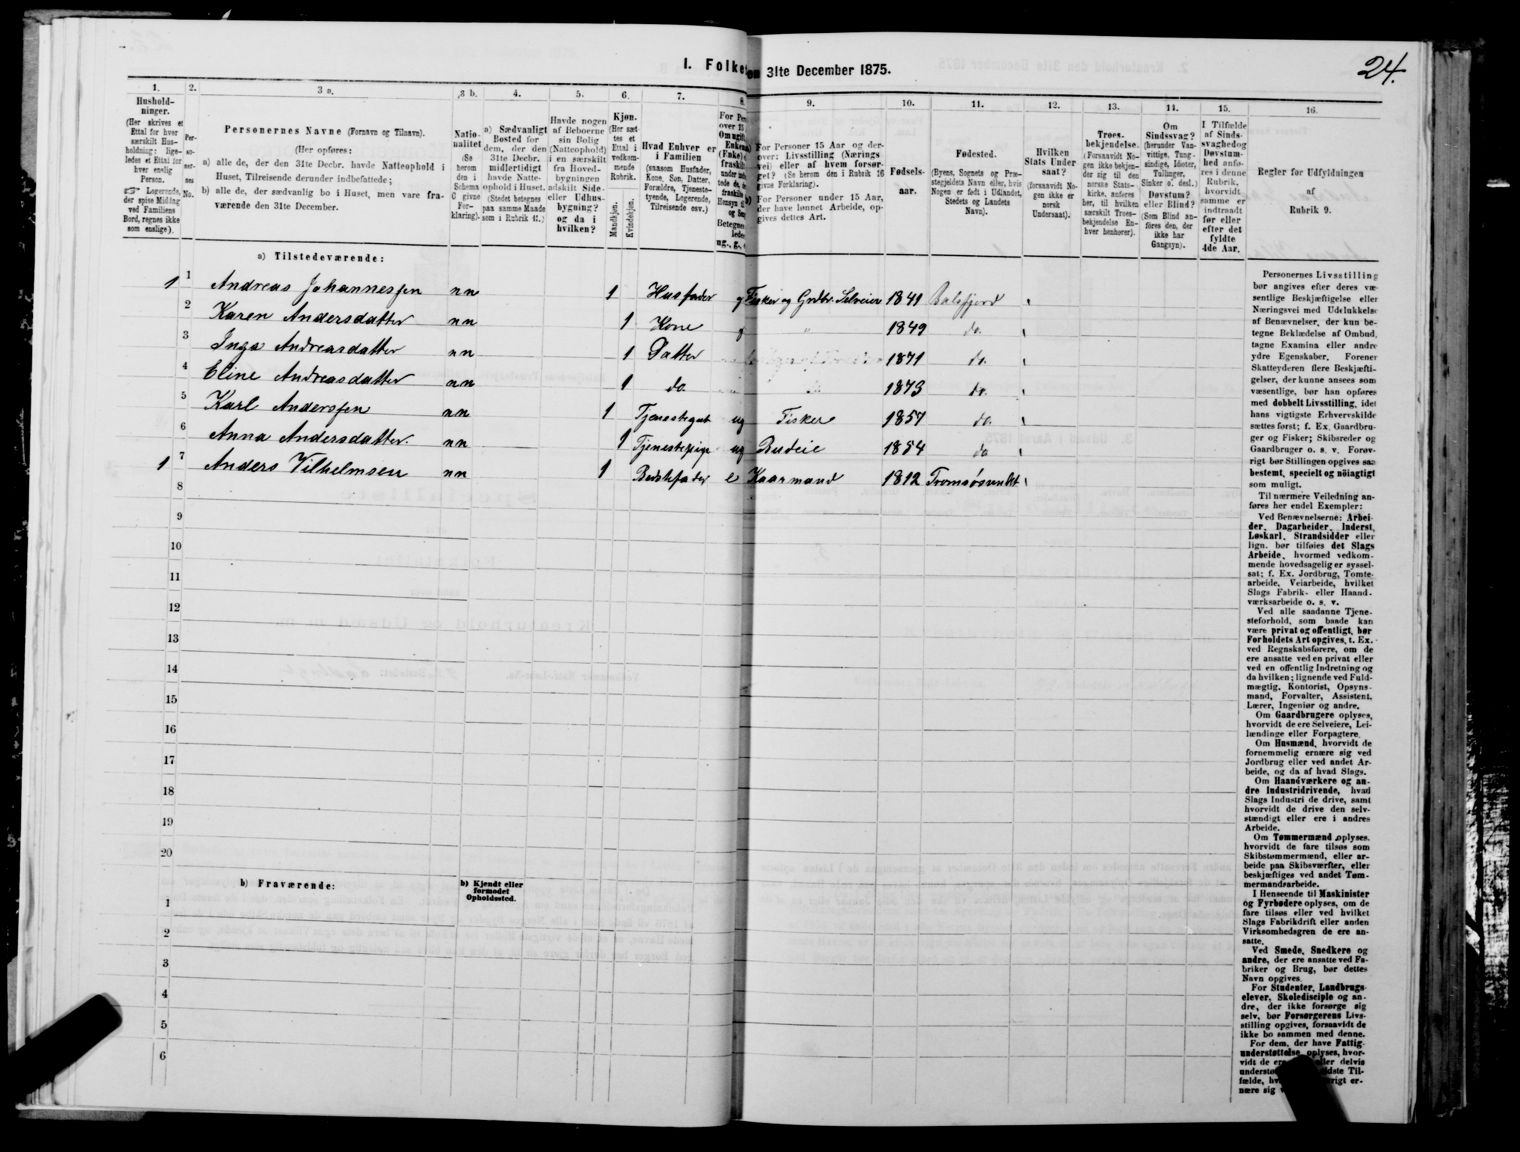 24.
I. Folke
3lte December 1875.
1. 2. 3 a. 3 b. 4. 5. 6. 7. 8. 9. 10. 11. 12. 13. 14. 15. 16.
Hushold-
ninger.
(Her skrives et
Ettal for hver
særskilt Hus-
holdning; lige-
ledes et Ettal for
hver enslig
Person.
☞ Logerende,
der spise Middag
ved Familiens
Bord, regnes ikke
som enslige).
Per-
so-
ner-
nes
No.
Personernes Navne (Fornavn og Tilnavn).
(Her opføres:
a) alle de, der den 31te Decbr. havde Natteophold i
Huset, Tilreisende derunder indbefattede;
b) alle de, der sædvanlig bo i Huset, men vare fra-
værende den 31te December.
Natio-
nalitet
(Se
herom
den i
Schema
C givne
For-
klaring).
a) Sædvanligt
Bosted for
dem, der den
31te Decbr.
midlertidigt
havde Natte-
ophold i Huset.
(Stedet betegnes
paa samme Maade
som i Rubrik 11.)
Havde nogen
af Beboerne
sin Bolig
(Natteophold)
i en særskilt
fra Hoved-
bygningen
adskilt Side-
eller Udhus-
bygning?
og da i
hvilken?
Kjøn.
(Her sæt-
tes et
Ettal i
vedkom-
mende
Rubrik.
Mandkjøn.
Kvindekjøn.
Hvad Enhver er
i Familien
(saasom Husfader,
Kone, Søn, Datter,
Forældre, Tjeneste-
tyende, Logerende,
Tilreisende osv.)
For Personer 15 Aar og der-
over: Livsstilling (Nærings
vei) eller af hvem forsør-
get? (Se herom den i Rubrik 16
givne Forklaring).
For Personer under 15 Aar,
der have lønnet Arbeide, op-
gives dettes Art.
Fødsels-
aar.
Fødested.
(Byens, Sognets og Præ-
stegjeldets Navn eller, hvis
Nogen er født i Udlandet,
Stedets og Landets
Navn).
Hvilken
Stats Under
saat?
(forsaavidt No-
gen ikke er
norsk
Undersaat).
Troes-
bekjendelse.
(Forsaavidt No-
gen ikke bekjen-
der sig til den
norske Stats-
kirke, anføres
her, til hvilken
særskilt Troes-
bekjendelse En-
hver henhører).
Om
Sindssvag?
(herunder Van-
vittige, Tung-
sindige, Idioter,
Tullinger,
Sinker o. desl.)
Døvstum?
eller Blind?
(Som Blind an-
føres den, der
ikke har
Gangsyn).
I Tilfælde
af Sinds-
svaghedog
Døvstum-
hed anfø-
res i denne
Rubrik,
hvorvidt
samme er
indtraadt
før eller
efter det
fyldte
4de Aar.
Regler før Udfyldningen
af
Rubrik 9.
a) Tilstedeværende:
1 1 Andreas Johannessen nn 1 Husfader g Fisker og Grdbr. Selveier 1841 Balsfjord
2 Karen Andersdatter nn 1 Kone g " 1849 do.
3 Inga Andreasdatter nn 1 Datter 1871 do.
4 Eline Andreasdatter nn 1 do. 1873 do.
5 Karl Anderssen nn 1 Tjenestegut ug Fisker 1857 do.
6 Anna Andersdatter. nn 1 Tjenestepige ug Budeie 1854 do
1 7 Anders Vilhelmsen nn 1 Bedstefader e Kaarmand 1812 Tromsøsundet
8
9
10
11
12
13
14
15
16
17
18
19
20
b) Fraværende:
b) Kjendt eller
formodet
Opholdssted.
1
2
3
4
5
6
Personernes Livsstilling
bør angives efter deres væ-
sentlige Beskjæftigelse eller
Næringsvei med Udelukkelse
af Benævnelser, der kun be-
tegne Beklædelse af Ombud,
tagne Examina eller andre
ydre Egenskaber. Forener
Skatteyderen flere Beskjæfti-
gelser, der kunne ansees som
væsentlige, bør han opføres
med dobbelt Livsstilling, idet
hans vigtigste Erhvervskilde
sættes først; f. Ex. Gaardbru-
ger og Fisker; Skibsreder og
Gaardbruger o. s. v. Forøv-
rigt bør Stillingen opgives saa
bestemt, specielt og nøiagtigt
som muligt.
Til nærmere Veiledning an-
føres her endel Exempler:
Ved Benævnelserne: Arbei-
der, Dagarbeider, Inderst,
Løskarl, Strandsidder eller
lign. bør tilføies det Slags
Arbeide, hvormed vedkom-
mende hovedsagelig er syssel-
sat; f. Ex. Jordbrug, Tomte-
arbeide, Veiarbeide, hvilket
Slags Fabrik- eller Haand-
værksarbeide o. s. v.
Ved alle saadanne Tjene-
steforhold, som baade kan
være privat og offentligt, bør
Forholdets Art opgives, t. Ex.
ved Regnskabsførere, om de
ere ansatte ved en privat eller
ved en offentlig Indretning og
da hvilken; lignende ved Fuld-
mægtig, Kontorist, Opsyns-
mand, Forvalter, Assistent,
Lærer, Ingeniør og andre.
Om Gaardbrugere oplyses,
hvorvidt de ere Selveiere, Lei-
lændinge eller Forpagtere.
Om Husmænd, hvorvidt de
fornemmelig ernære sig ved
Jordbrug eller ved andet Ar-
beide, og da af hvad Slags.
Om Haandværkere og an-
dre Industridrivende, hvad
Slags Industri de drive, samt
hvorvidt de drive den selv-
stændigt eller ere i andres
Arbeide.
Om Tømmermænd oplyses,
hvorvidt de fare tilsøs som
Skibstømmermænd, eller ar-
beide paa Skibsværfter, eller
beskjæftiges ved andet Tøm-
mermandsarbeide.
I Henseende til Maskinister
og Fyrbødere oplyses, om de
fare tilsøs eller ved hvilket
Slags Fabrikdrift eller anden
Virksomhedsgren de ere an-
satte.
Ved Smede, Snedkere og
andre, der ere ansatte ved Fa-
briker og Brug, bør dettes
Navn opgives.
For Studenter, Landbrugs-
elever, Skoledisciple og an-
dre, der ikke forsørge sig
selv, bør Forsørgerens Livs-
stilling opgives, forsaavidt de
ikke bo sammen med denne.
For dem, der have Fattig-
understøttelse, oplyses, hvor-
vidt de ere eller delvis
underst idste Til-
fælde, hv rigt er-
nære sig